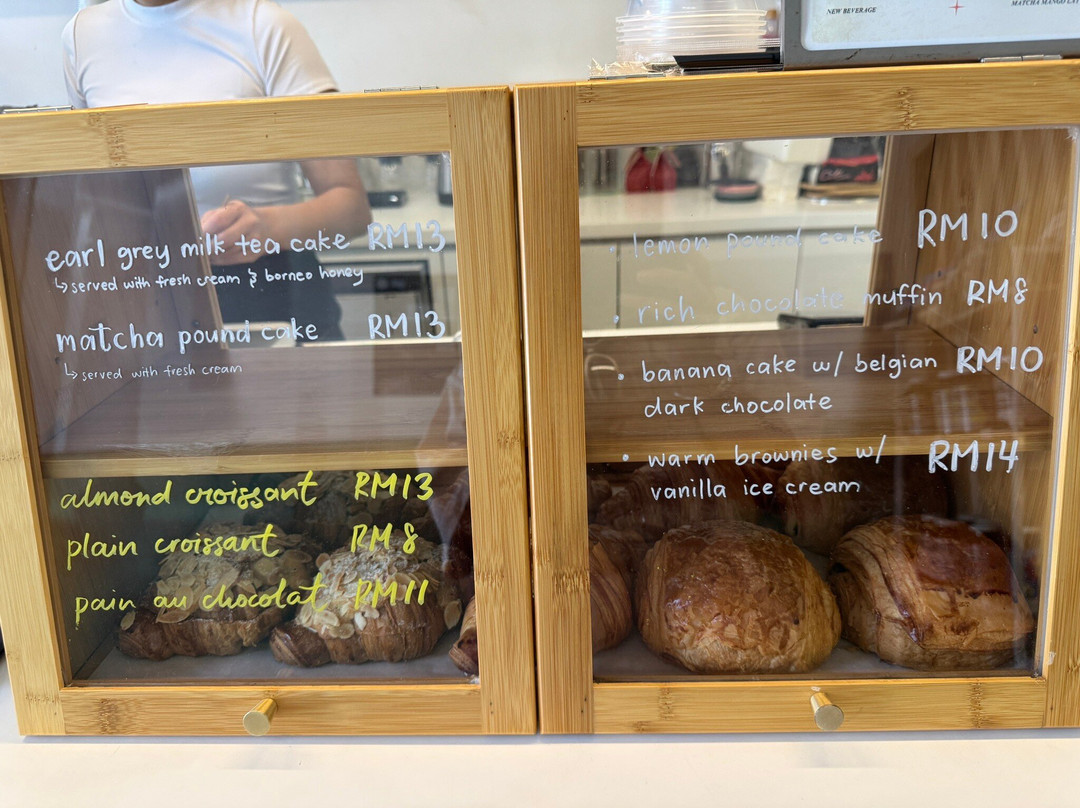 NEW BEVERAGE
MATCHA MANGO
earl grey milk tea cake RM13
↳ served with fresh cream & borneo honey
matcha pound cake RM13
↳ served with fresh cream
almond croissant RM13
plain croissant RM8
pain au chocolat RM11
• lemon pound cake RM10
• rich chocolate muffin RM8
• banana cake w/ belgian RM10
dark chocolate
• warm brownies w/ RM14
vanilla ice cream